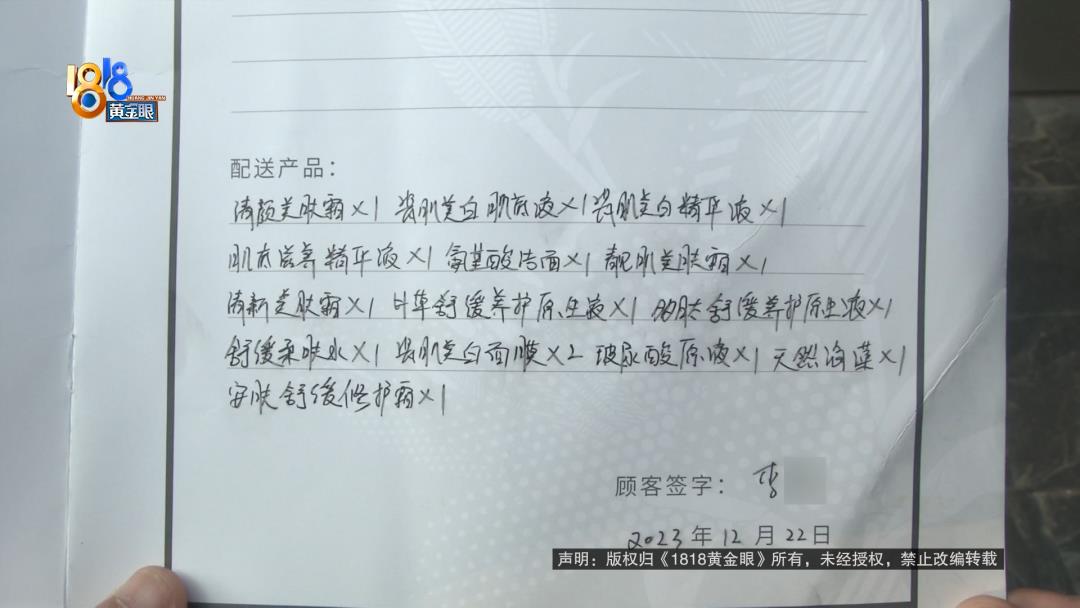 1818
HUANG JIN YAN
黄金眼
配送产品：
清颜美肤霜×1 瓷肌美白肌底液×1 瓷肌美白精华液×1
肌底滋养精华液×1 氨基酸洁面×1 靓肌美肤霜×1
清新美肤霜×1 叶华舒缓养护原生液×1 多肽舒缓养护原生液×1
舒缓柔肤水×1 瓷肌美白面膜×2 玻尿酸原液×1 天然海藻×1
安肤舒缓修护霜×1
顾客签字：李
2023年12月22日
声明：版权归《1818黄金眼》所有，未经授权，禁止改编转载